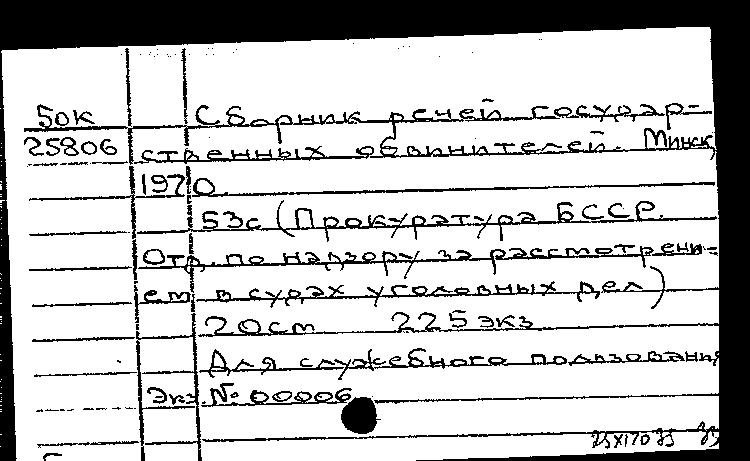 50к
25806
Сборник речей государ-
ственных обвинителей. Минск,
1970.
53с (Прокуратура БССР.
Отд. по надзору за рассмотрени-
ем в судах уголовных дел)
20см 225 экз
Для служебного пользования
Экз. № 00006